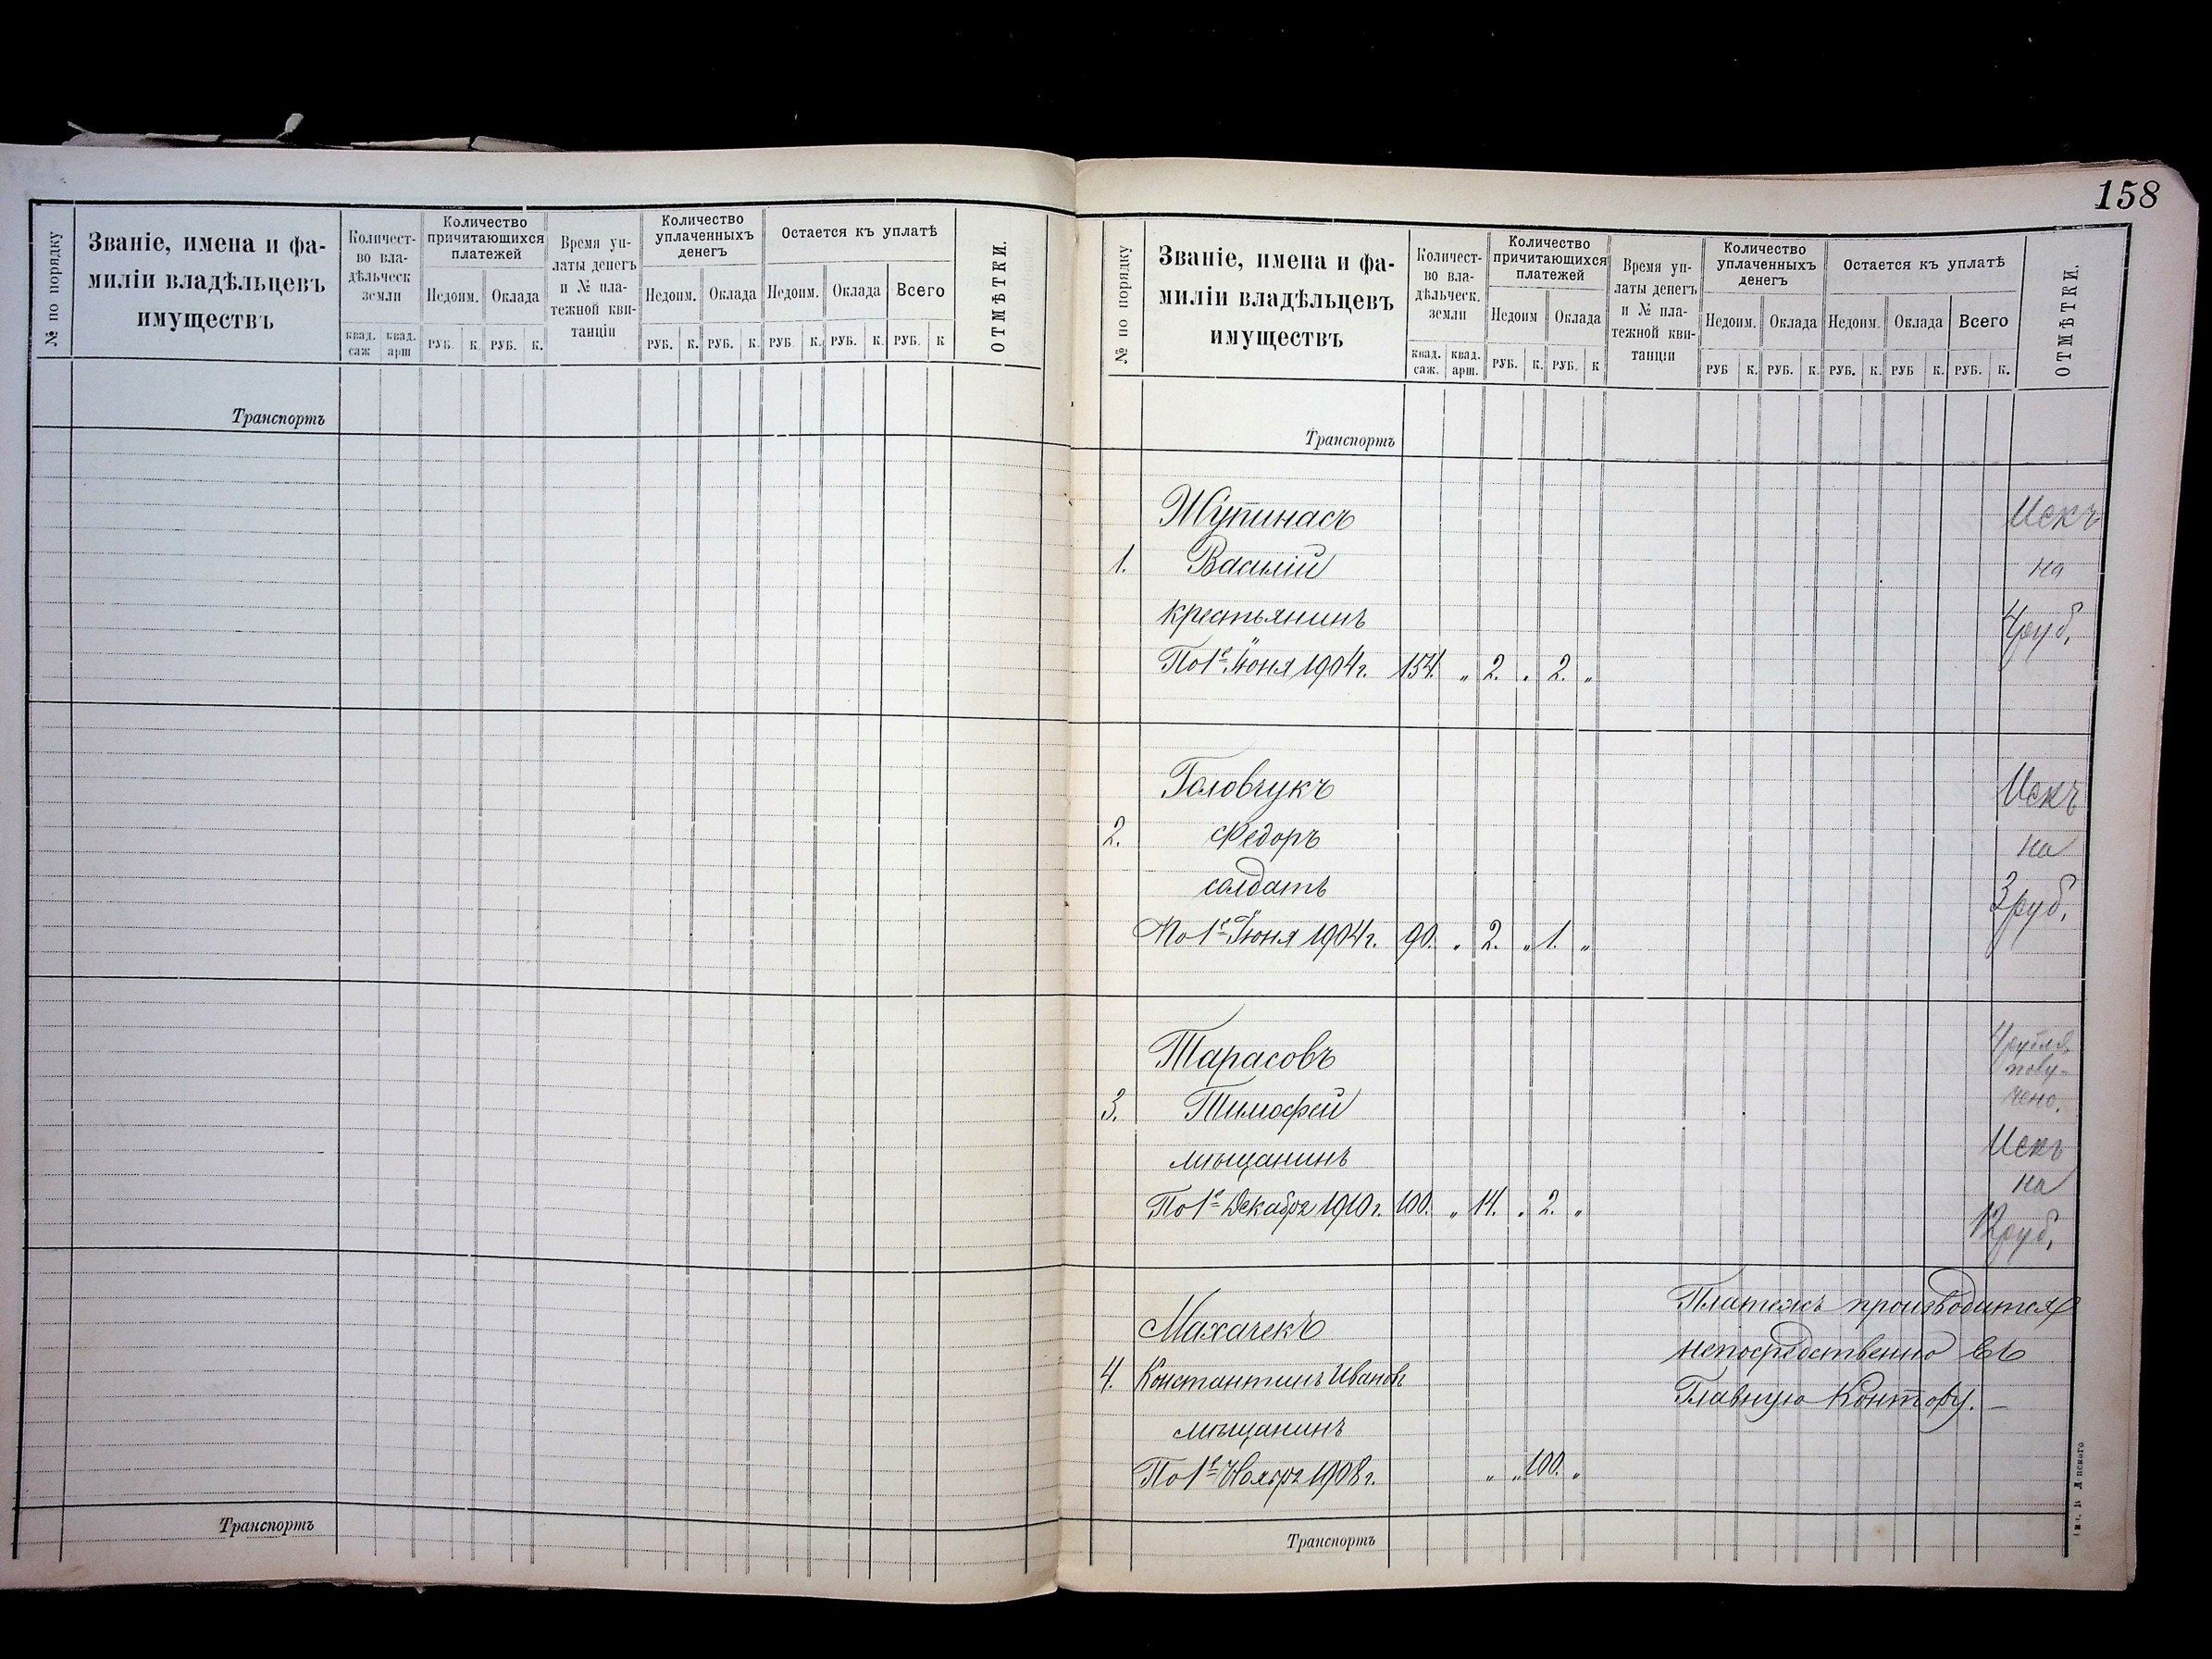 158
№ по порядку
Званіе, имена и фа-
миліи владѣльцевъ
имуществъ
Количест-
во вла-
дѣльческ
земли
квад. саж
квад. арш
Количество
причитающихся
платежей
Недоим. Оклада
РУБ. К. РУБ. К.
Время уп-
латы денегъ
и № пла-
тежной кви-
танціи
Количество
уплаченныхъ
денегъ
Недоим. Оклада
РУБ. К. РУБ. К.
Остается къ уплатѣ
Недоим. Оклада Всего
РУБ К. РУБ. К. РУБ. К
ОТМѢТКИ.
Транспортъ
Транспортъ
№ по порядку
Званіе, имена и фа-
миліи владѣльцевъ
имуществъ
Количест-
во вла-
дѣльческ.
земли
квад. саж.
квад. арш.
Количество
причитающихся
платежей
Недоим Оклада
РУБ. К. РУБ. К
Время уп-
латы денегъ
и № пла-
тежной кви-
танціи
Количество
уплаченныхъ
денегъ
Недоим. Оклада
РУБ К. РУБ. К.
Остается къ уплатѣ
Недоим. Оклада Всего
РУБ. К. РУБ К. РУБ. К.
ОТМѢТКИ.
Транспортъ
Жупинасъ
1. Василій
крестьянинъ
По 1е Іюня 1904 г. 154. „ 2. „ 2. „
Искъ
на
4 руб.
Головчукъ
2. Федоръ
солдатъ
По 1е Іюня 1904 г. 90. „ 2. „ 1. „
Искъ
на
3 руб.
Тарасовъ
3. Тимофей
мѣщанинъ
По 1е Декабря 1910 г. 100. „ 14. „ 2. „
4 рубля
полу-
чено.
Искъ
на
12 руб.
Махачекъ
4. Константинъ Ивановъ
мѣщанинъ
По 1е Ноября 1908 г. „ „ 100. „
Платежъ производится
непосредственно въ
Главную Контору. –
Транспортъ